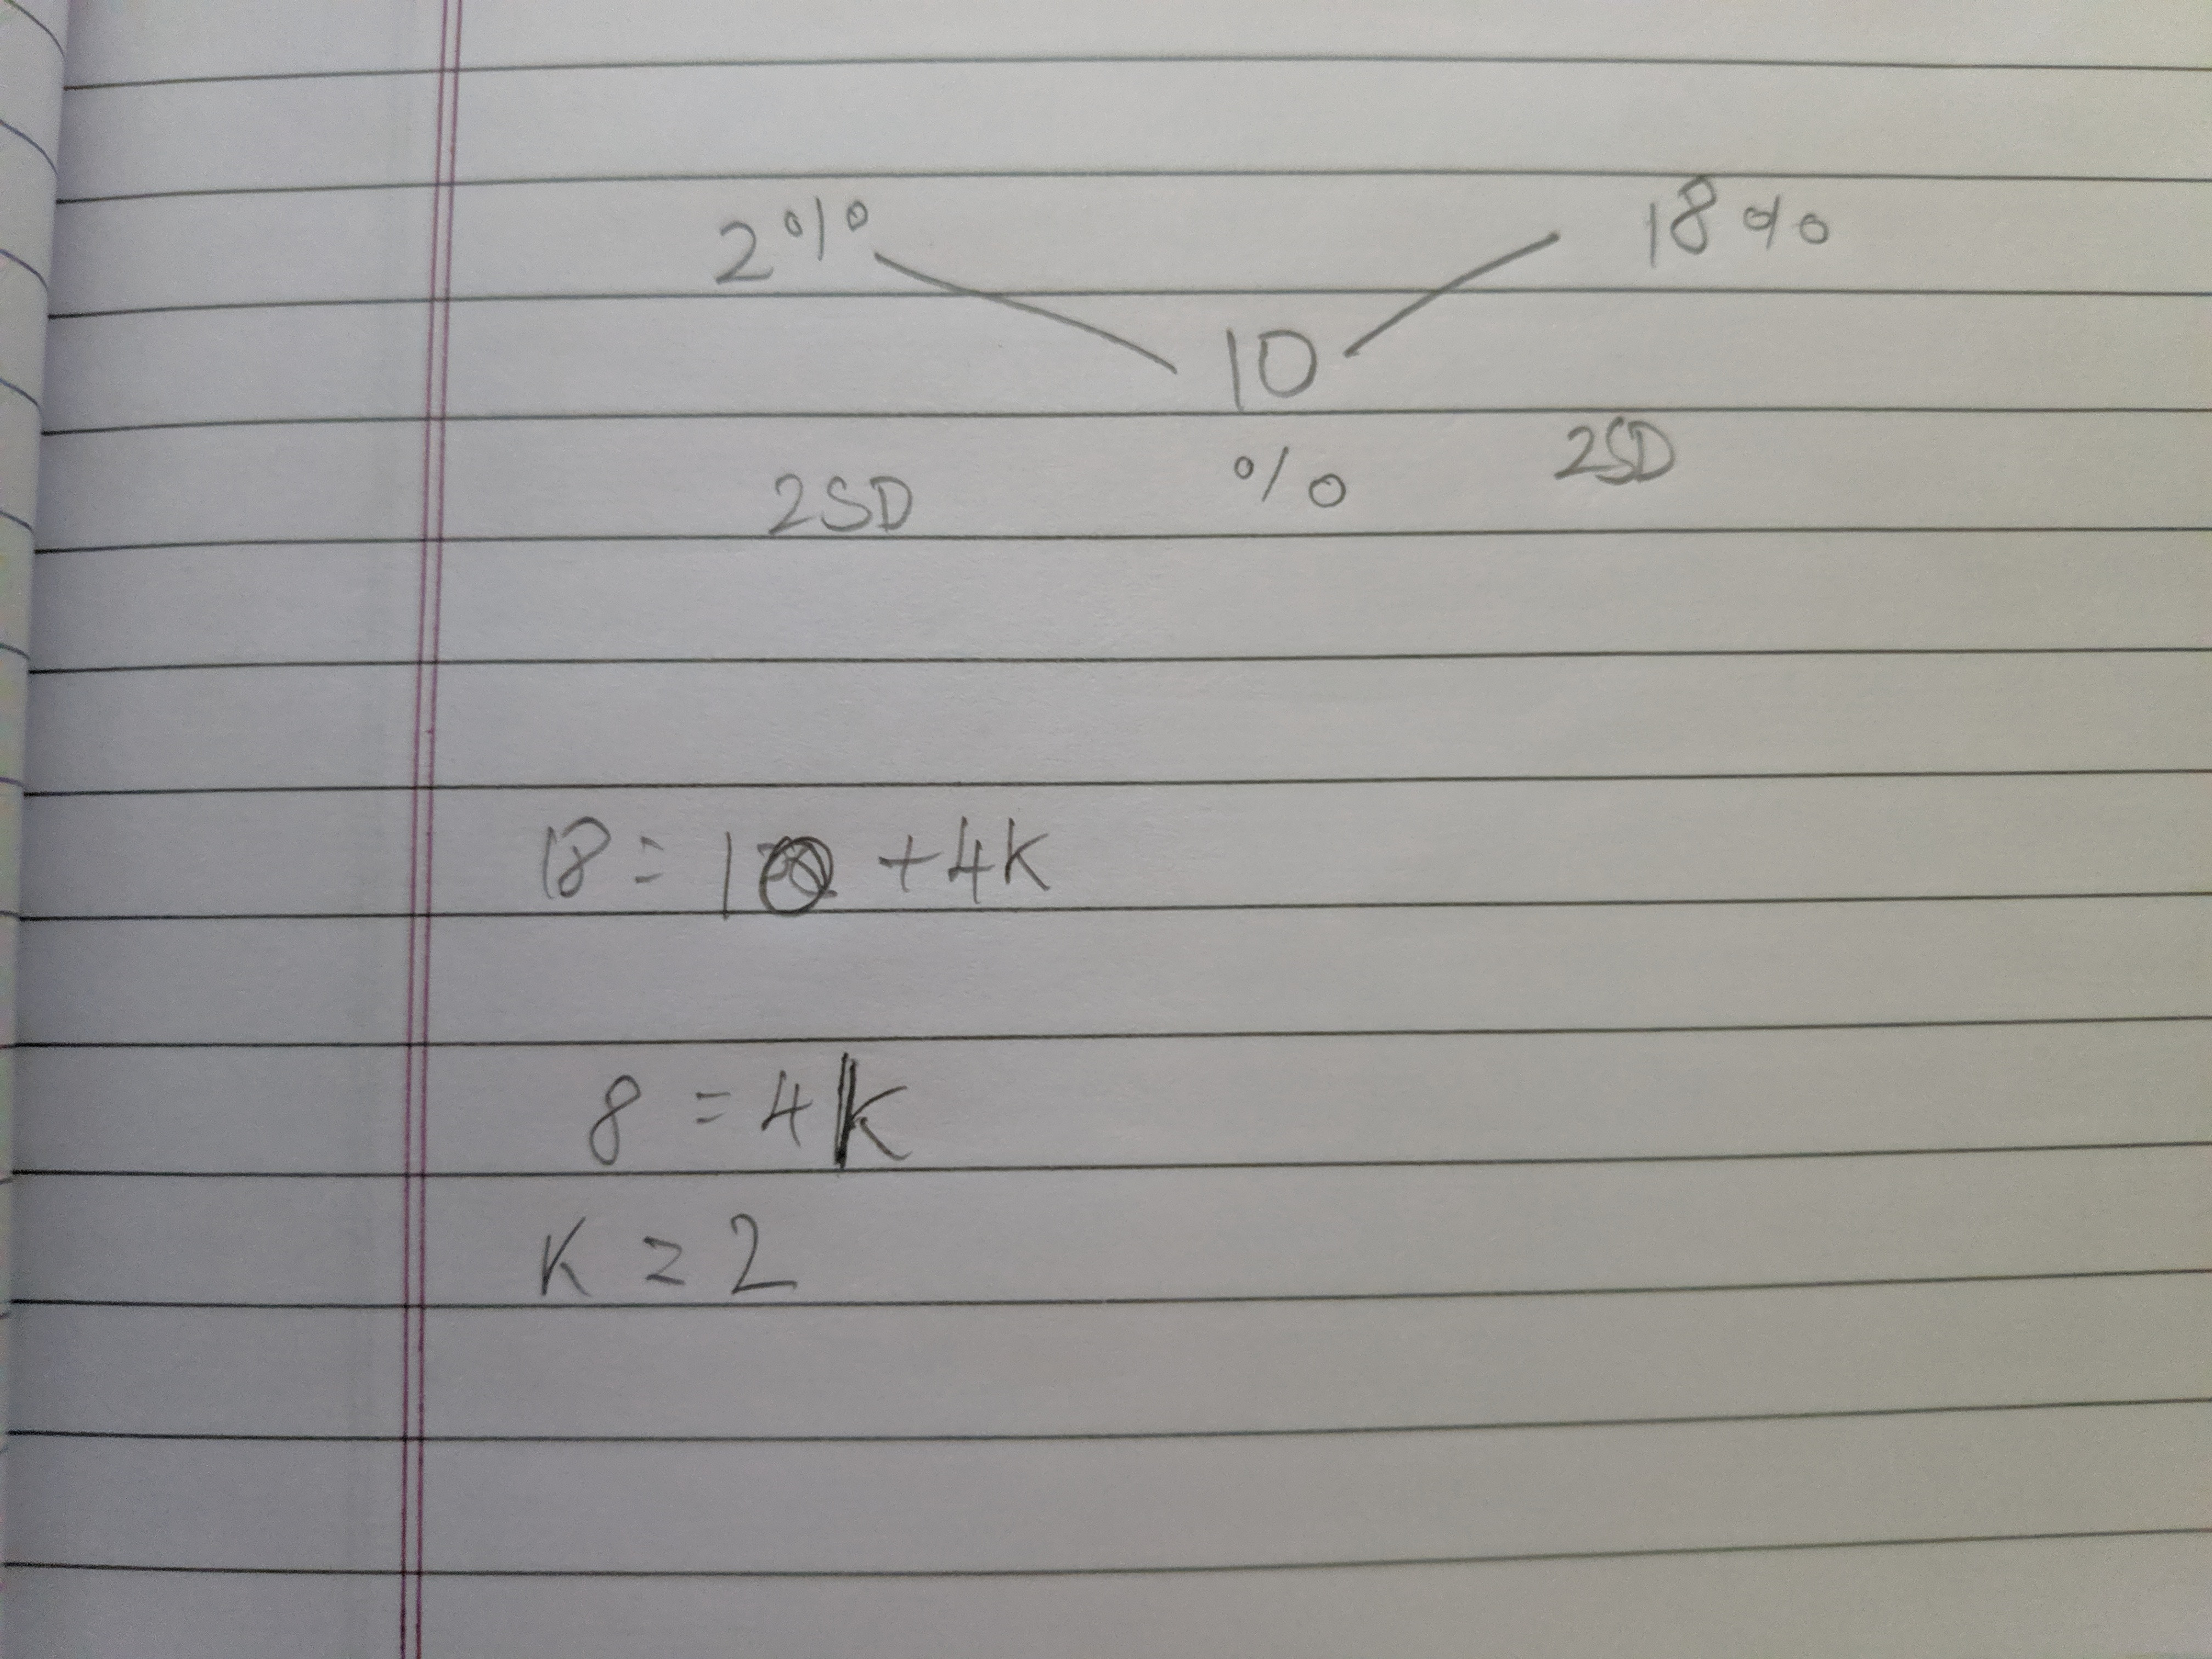 2% 18%
10
% 2SD
2SD
18 = 10 + 4K
8 = 4K
K = 2